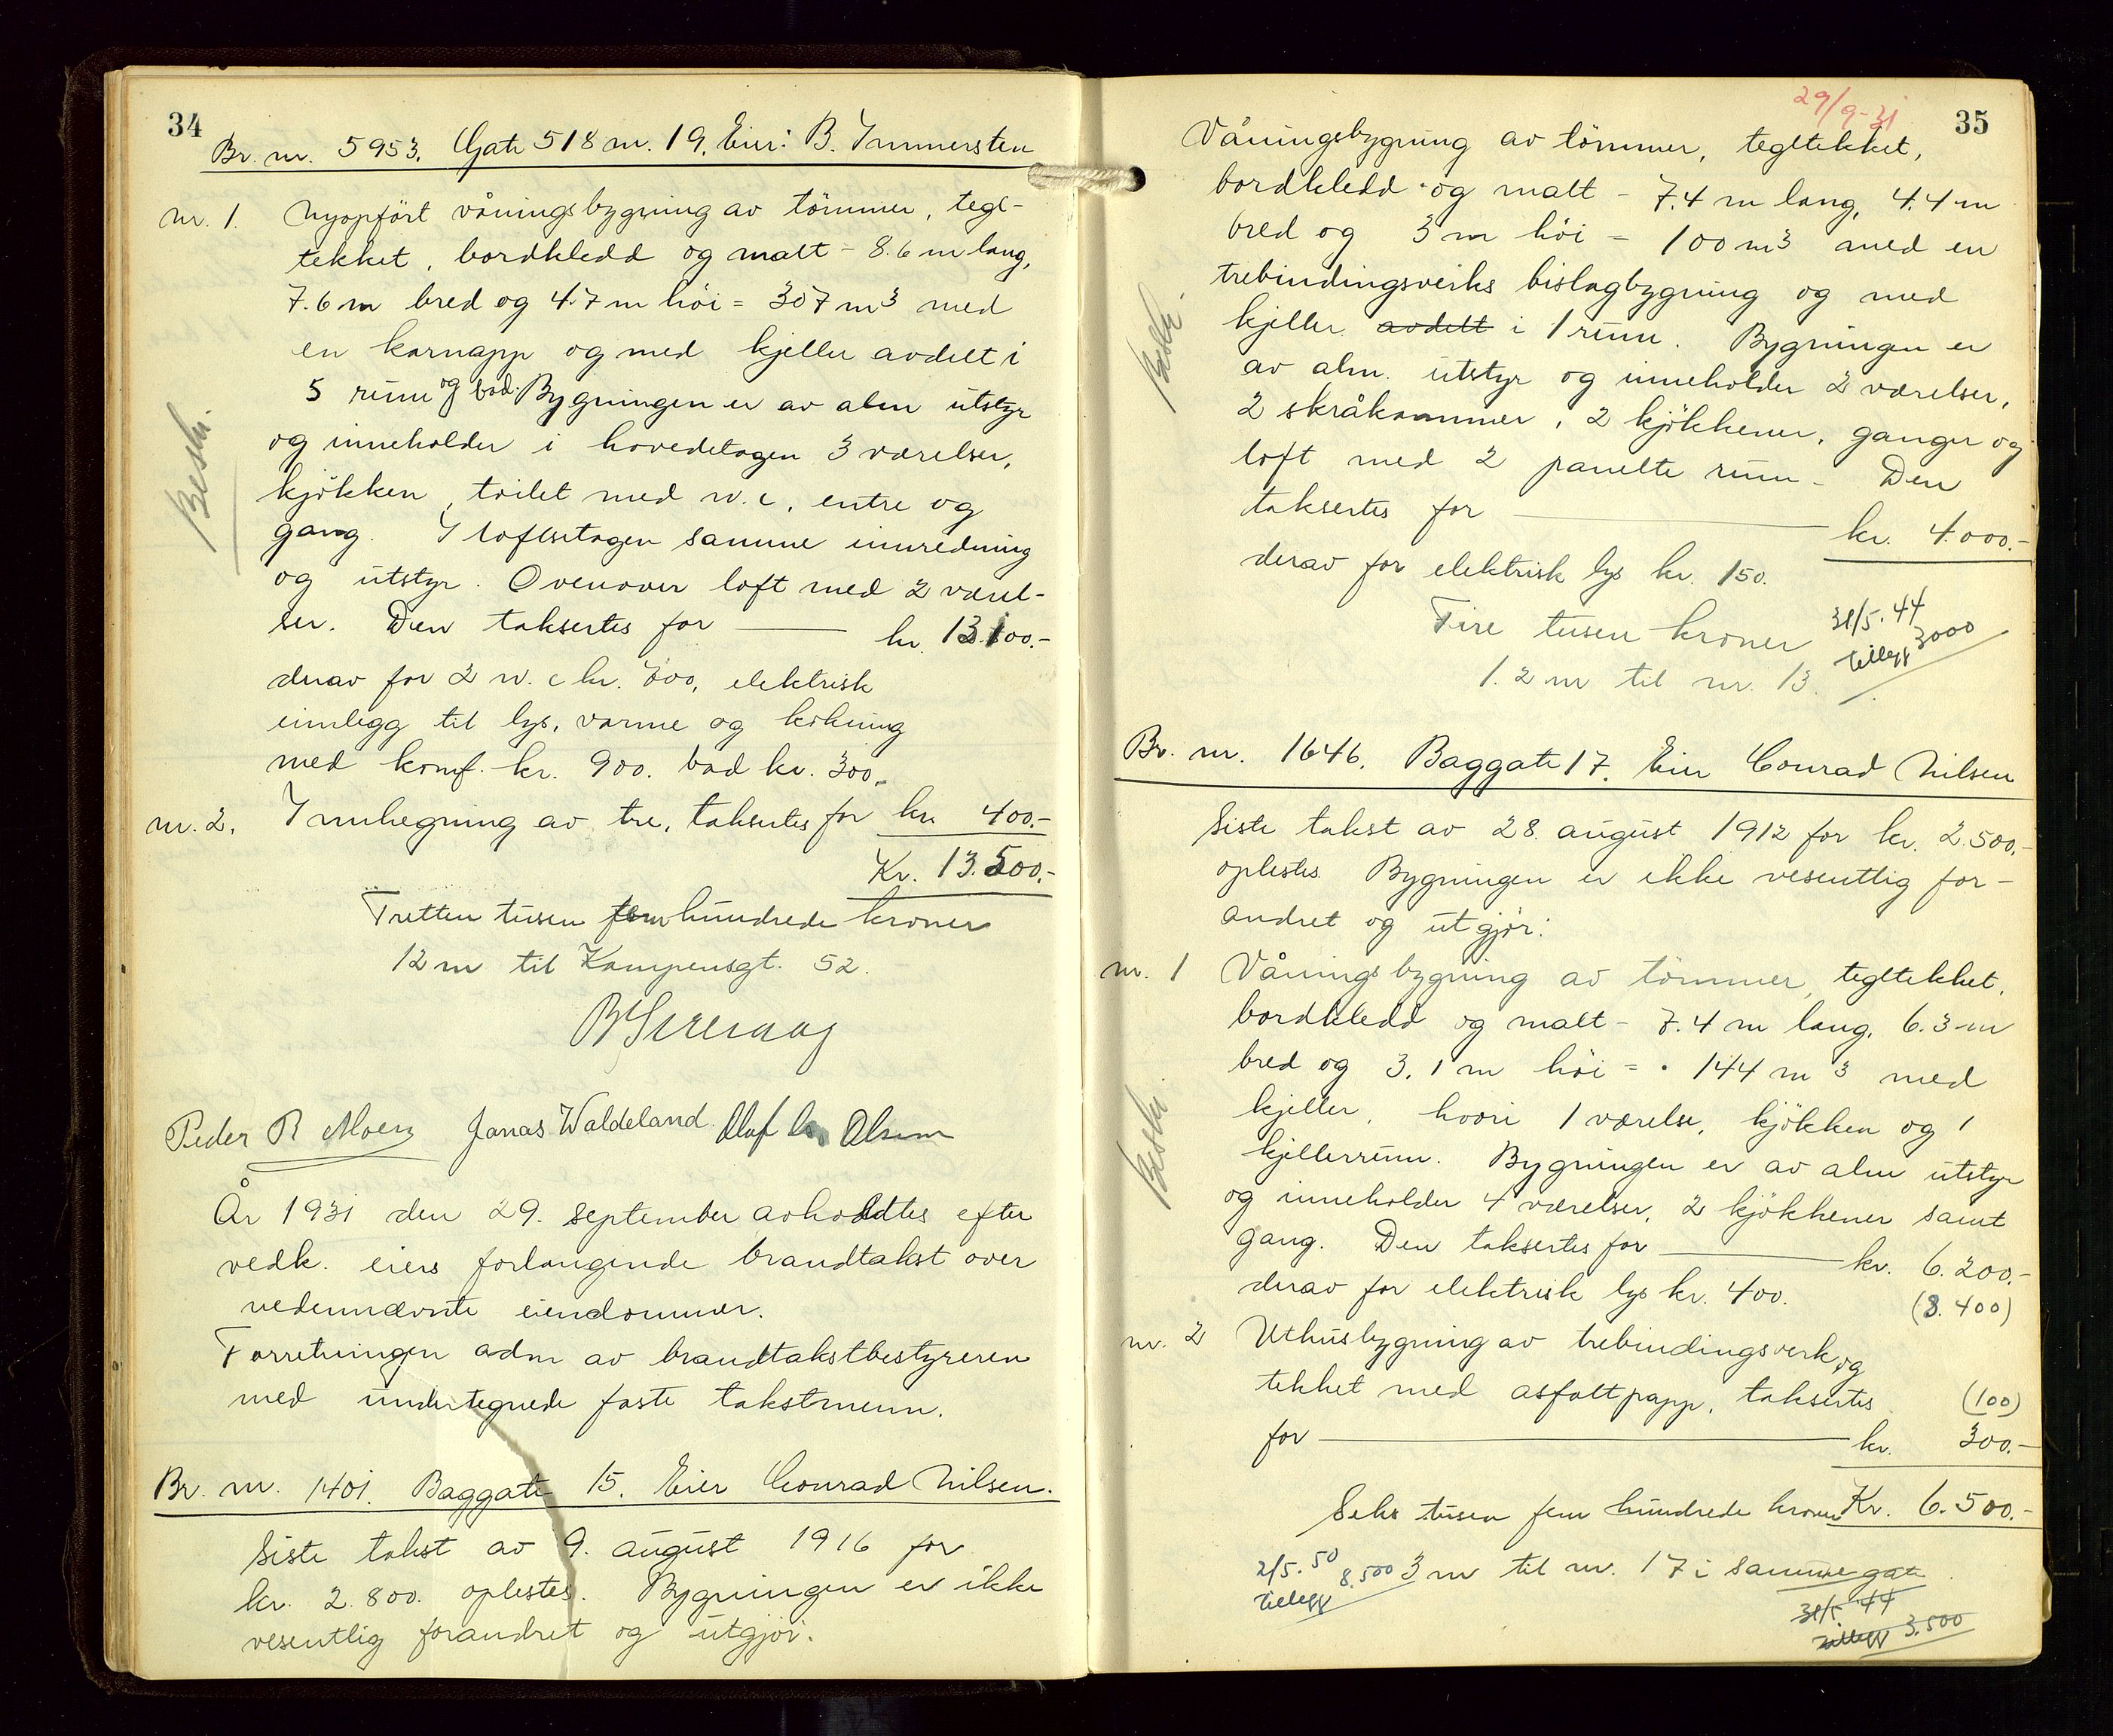 34
Br. nr. 5953. Gate 518 nr. 19. Eier: B. Immersten
nr. 1. Nyopført våningsbygning av tømmer, tegl-
tekket, bordkledd og malt - 8.6 m lang,
7.6 m bred og 4.7 m høi = 307 m3 med
en karnapp og med kjeller avdelt i
5 rum og bad. Bygningen er av alm utstyr
og inneholder i hovedetagen 3 værelser,
kjøkken, toilet med w.c, entre og
gang. I loftsetagen samme innredning
og utstyr. Ovenover loft med 2 værel-
ser. Den taksertes for kr. 13.100.-
derav for 2 w.c kr. 700, elektrisk
innlegg til lys, varme og kokning
med komf. kr. 900. bad kr. 300.-
nr. 2. Innhegning av tre, taksertes for kr. 400.-
Kr. 13.500.-
Beskr.
Tretten tusen fem hundrede kroner
12 m til Kampensgt. 52.
Peder R Moen Jonas Waldeland. Olaf Olsen
År 1931 den 29. september avholdtes efter
vedk. eiers forlangende brandtakst over
nedennævnte eiendommer.
Forretningen adm av brandtakstbestyreren
med undertegnede faste takstmenn.
Br. nr. 1401. Baggate 15. Eier Conrad Nilsen.
Siste takst av 9. august 1916 for
kr. 2.800. oplestes. Bygningen er ikke
vesentlig forandret og utgjør.
29/9-31
35
Våningsbygning av tømmer, tegltekket,
bordkledd og malt - 7.4 m lang, 4.4 m
bred og 3 m høi = 100 m3 med en
trebindingsverks bislagbygning og med
kjeller avdelt i 1 rum. Bygningen er
av alm. utstyr og inneholder 2 værelser,
2 skråkammer, 2 kjøkkener, ganger og
loft med 2 panelte rum - Den
taksertes for kr. 4.000.-
derav for elektrisk lys kr. 150.
Beskr.
Fire tusen kroner
31/5. 44
tillegg 3000
1.2 m til nr. 13.
Br. nr. 1646. Baggate 17. Eier Conrad Nilsen
Siste takst av 28. august 1912 for kr. 2.500.-
oplestes. Bygningen er ikke vesentlig for-
andret og utgjør:
nr. 1 Våningsbygning av tømmer, tegltekket,
bordkledd og malt - 7.4 m lang, 6.3 m
bred og 3.1 m høi = 144 m3 med
kjeller, hvori 1 værelse, kjøkken og 1
kjellerrum. Bygningen er av alm utstyr
og inneholder 4 værelser, 2 kjøkkener samt
gang. Den taksertes for kr. 6.200.-
derav for elektrisk lys kr. 400. (8.400)
Beskr.
nr. 2 Uthusbygning av trebindingsverk og
tekket med asfaltpapp, taksertes (100)
for kr. 300.-
Seks tusen fem hundrede kroner Kr. 6.500.-
2/5. 50 8.500 3 m til nr. 17 i samme gate
tillegg
31/5 44
tillegg 3.500